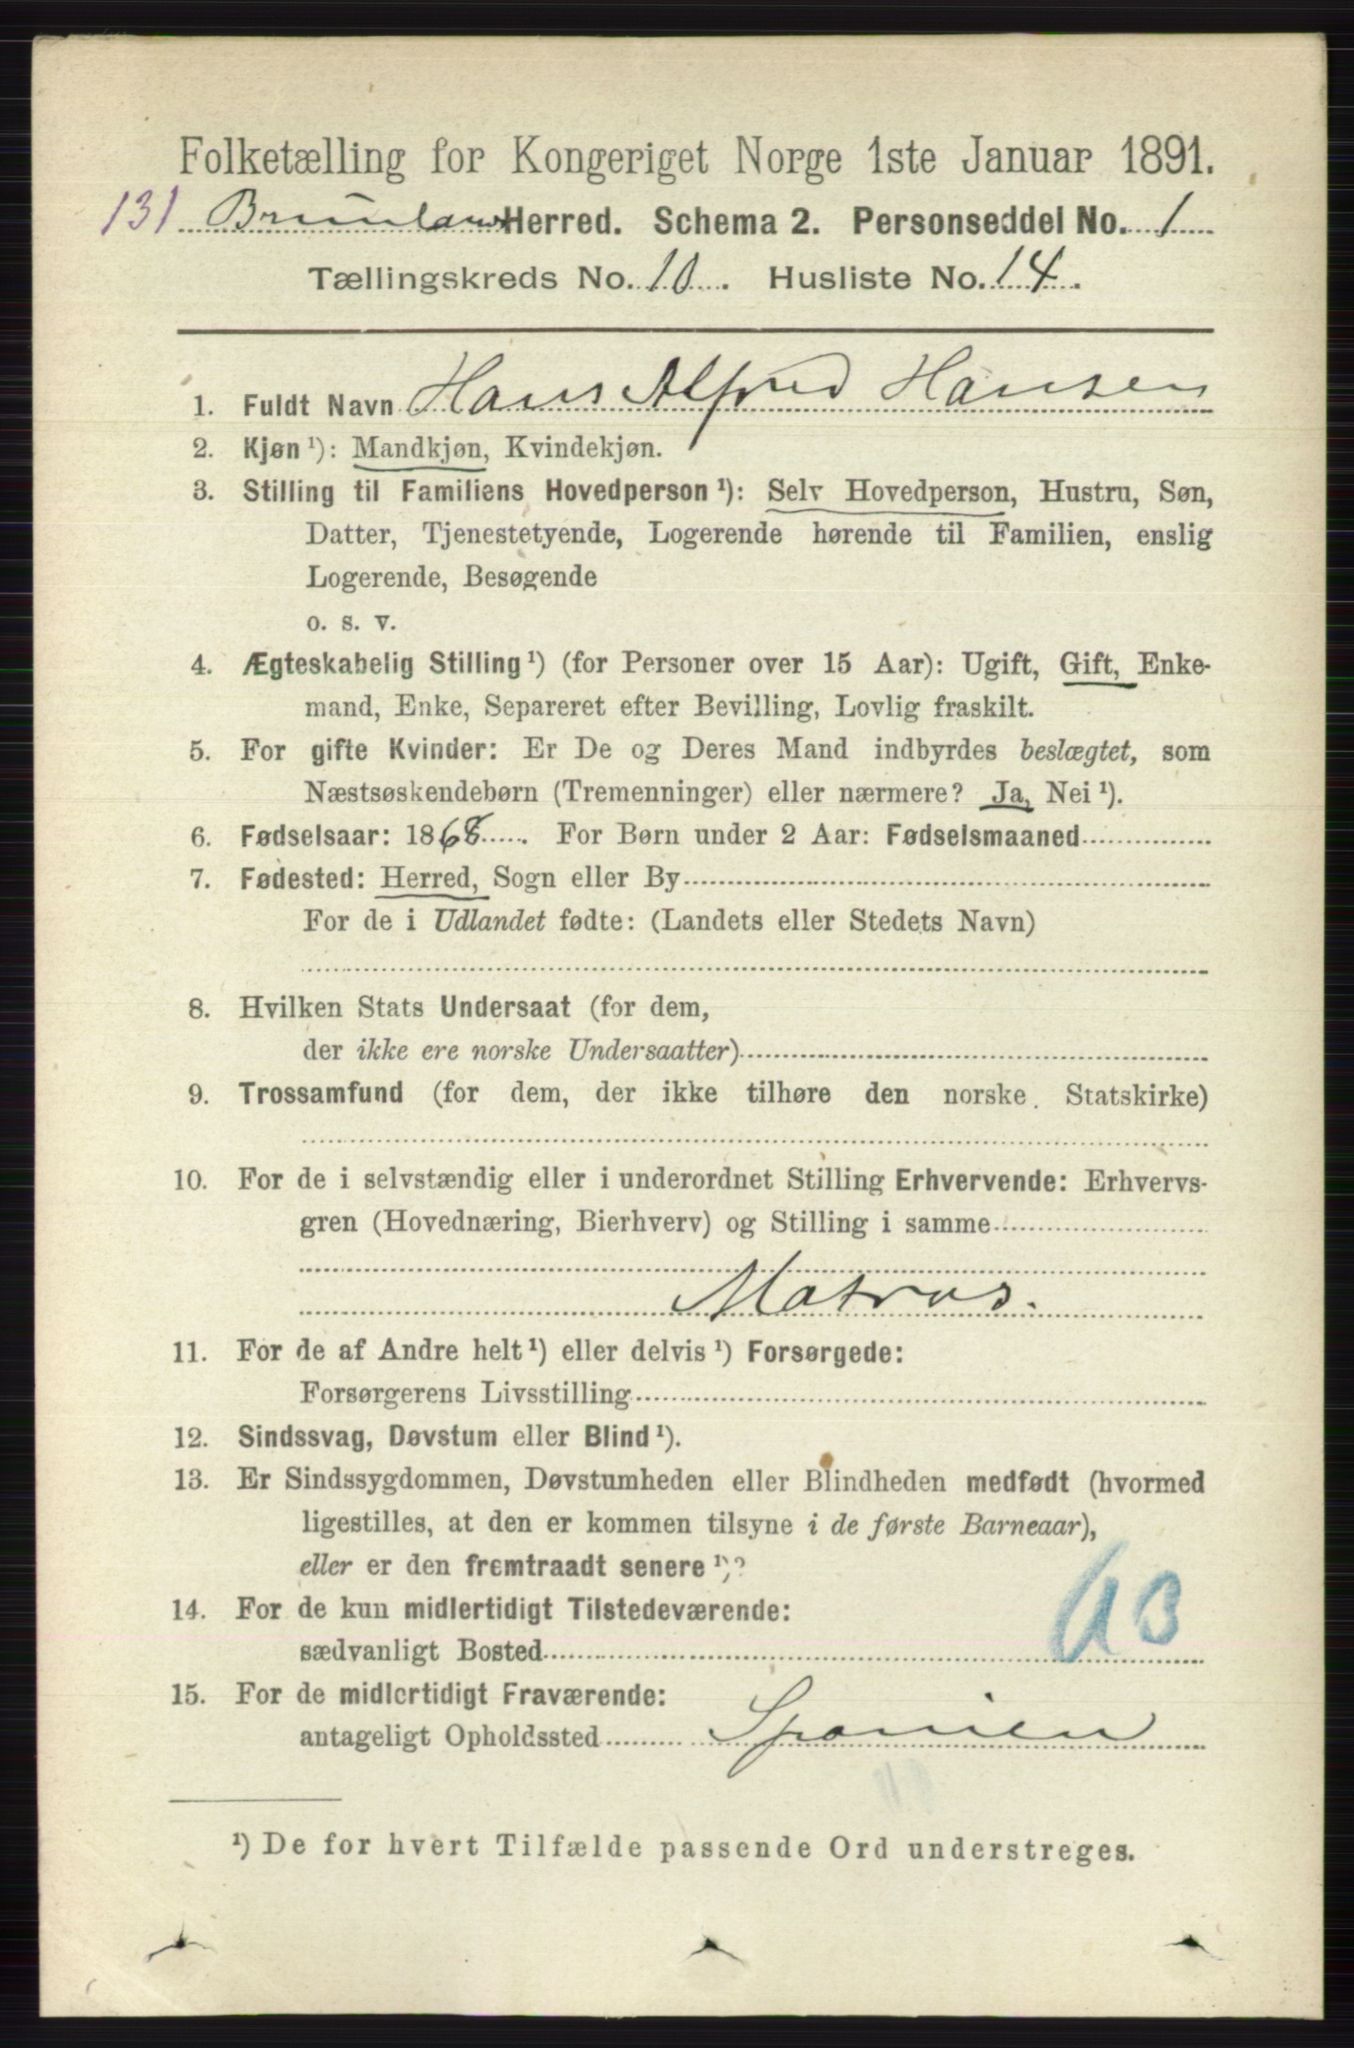 Folketælling for Kongeriget Norge 1ste Januar 1891.
131 Brunlanes Herred. Schema 2. Personseddel No. 1
Tællingskreds No. 10. Husliste No. 14.
1. Fuldt Navn Hans Alfred Hansen
2. Kjøn ¹): Mandkjøn, Kvindekjøn.
3. Stilling til Familiens Hovedperson ¹): Selv Hovedperson, Hustru, Søn,
Datter, Tjenestetyende, Logerende hørende til Familien, enslig
Logerende, Besøgende
o. s. v.
4. Ægteskabelig Stilling ¹) (for Personer over 15 Aar): Ugift, Gift, Enke-
mand, Enke, Separeret efter Bevilling, Lovlig fraskilt.
5. For gifte Kvinder: Er De og Deres Mand indbyrdes beslægtet, som
Næstsøskendebørn (Tremenninger) eller nærmere? Ja, Nei ¹).
6. Fødselsaar: 1868. For Børn under 2 Aar: Fødselsmaaned
7. Fødested: Herred, Sogn eller By
For de i Udlandet fødte: (Landets eller Stedets Navn)
8. Hvilken Stats Undersaat (for dem,
der ikke ere norske Undersaatter)
9. Trossamfund (for dem, der ikke tilhøre den norske Statskirke)
10. For de i selvstændig eller i underordnet Stilling Erhvervende: Erhvervs-
gren (Hovednæring, Bierhverv) og Stilling i samme
Matros.
11. For de af Andre helt ¹) eller delvis ¹) Forsørgede:
Forsørgerens Livsstilling
12. Sindssvag, Døvstum eller Blind ¹).
13. Er Sindssygdommen, Døvstumheden eller Blindheden medfødt (hvormed
ligestilles, at den er kommen tilsyne i de første Barneaar),
eller er den fremtraadt senere ¹)?
14. For de kun midlertidigt Tilstedeværende:
sædvanligt Bosted
15. For de midlertidigt Fraværende:
antageligt Opholdssted Spanien
¹) De for hvert Tilfælde passende Ord understreges.